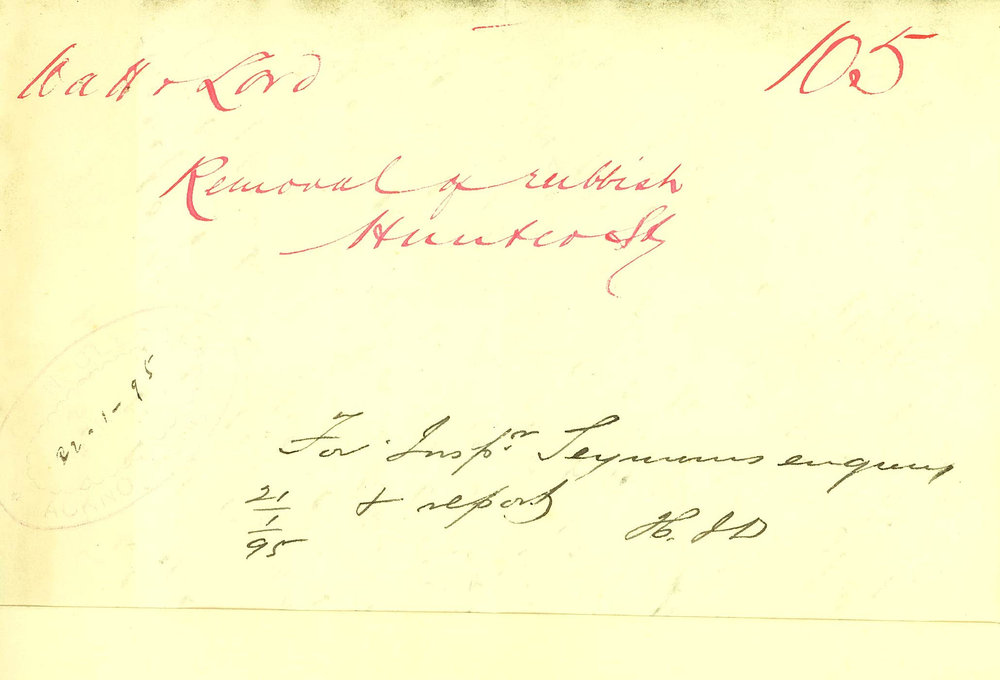 Watt & Lord
105
Removal of rubbish
Hunter St
22-1-95
For Inspr. Seymours enquiry
& report
21
1
95
H. J D